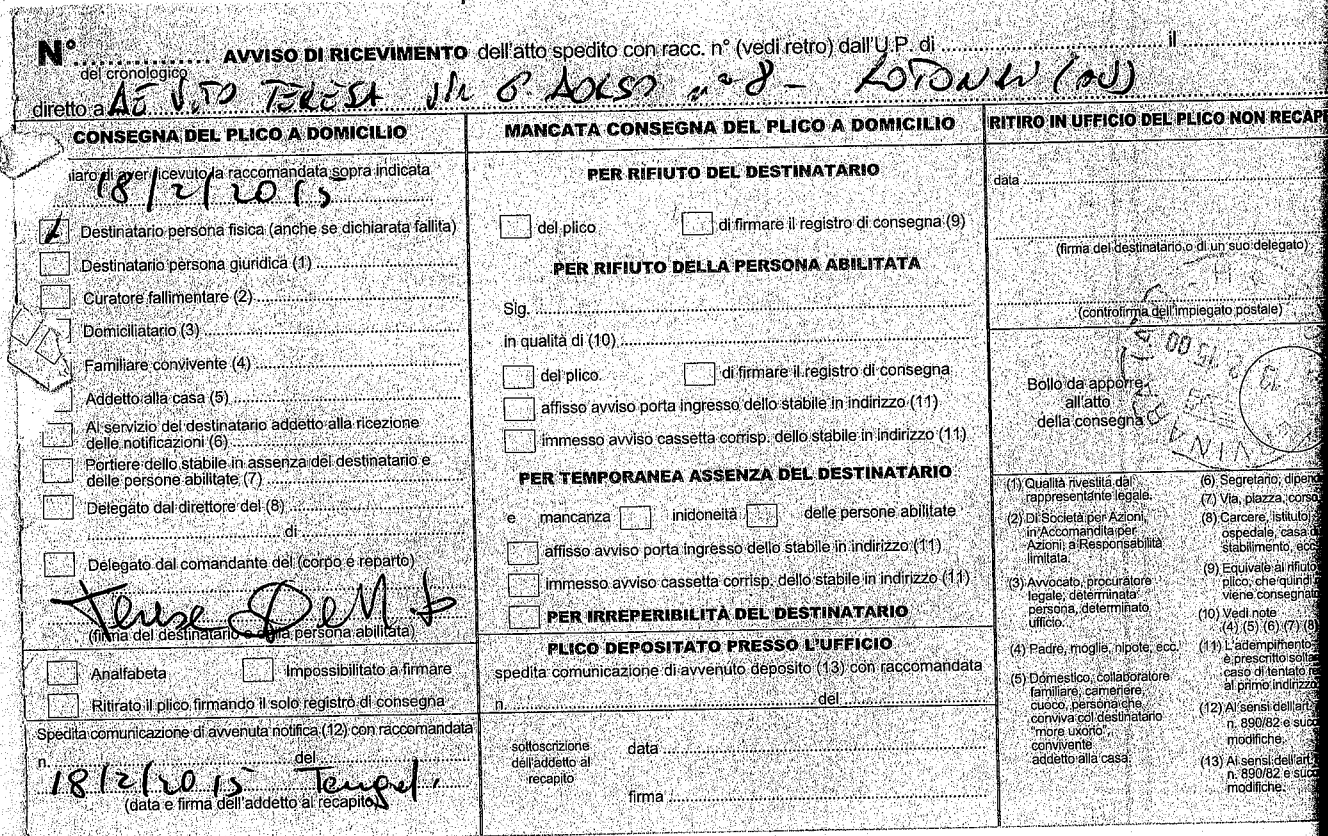 N° ............... AVVISO DI RICEVIMENTO dell'atto spedito con racc. n° (vedi retro) dall'U.P. di ............... il ...............
del cronologico
diretto a TERESA n° 8 -
CONSEGNA DEL PLICO A DOMICILIO
iaro di aver ricevuto la raccomandata sopra indicata
18/2/2015
Destinatario persona fisica (anche se dichiarata fallita)
Destinatario persona giuridica (1)
Curatore fallimentare (2)
Domiciliatario (3)
Familiare convivente (4)
Addetto alla casa (5)
Al servizio del destinatario addetto alla ricezione
delle notificazioni (6)
Portiere dello stabile in assenza del destinatario e
delle persone abilitate (7)
Delegato dal direttore del (8)
di
Delegato dal comandante del (corpo e reparto)
(firma del destinatario o della persona abilitata)
Analfabeta Impossibilitato a firmare
Ritirato il plico firmando il solo registro di consegna
Spedita comunicazione di avvenuta notifica (12) con raccomandata
n. del
18/2/2015
(data e firma dell'addetto al recapito)
MANCATA CONSEGNA DEL PLICO A DOMICILIO
PER RIFIUTO DEL DESTINATARIO
del plico di firmare il registro di consegna (9)
PER RIFIUTO DELLA PERSONA ABILITATA
Sig.
in qualità di (10)
del plico. di firmare il registro di consegna
affisso avviso porta ingresso dello stabile in indirizzo (11)
immesso avviso cassetta corrisp. dello stabile in indirizzo (11)
PER TEMPORANEA ASSENZA DEL DESTINATARIO
e mancanza inidoneità delle persone abilitate
affisso avviso porta ingresso dello stabile in indirizzo (11)
immesso avviso cassetta corrisp. dello stabile in indirizzo (11)
PER IRREPERIBILITÀ DEL DESTINATARIO
PLICO DEPOSITATO PRESSO L'UFFICIO
spedita comunicazione di avvenuto deposito (13) con raccomandata
n. del
sottoscrizione
dell'addetto al
recapito
data
firma
RITIRO IN UFFICIO DEL PLICO NON RECAPI
data
(firma del destinatario o di un suo delegato)
(controfirma dell'impiegato postale)
Bollo da apporre
all'atto
della consegna
(1) Qualità rivestita dal
rappresentante legale.
(2) Di Società per Azioni,
in Accomandita per
Azioni; a Responsabilità
limitata.
(3) Avvocato, procuratore
legale, determinata
persona, determinato
ufficio.
(4) Padre, moglie, nipote, ecc.
(5) Domestico, collaboratore
familiare, cameriere,
cuoco, persona che
conviva col destinatario
"more uxorio",
convivente
addetto alla casa.
(6) Segretario, dipend
(7) Via, piazza, corso
(8) Carcere, istituto,
ospedale, casa d
stabilimento, ecc
(9) Equivale al rifiuto
plico, che quindi
viene consegnato
(10) Vedi note
(4) (5) (6) (7) (8)
(11) L'adempimento
è prescritto solta
caso di tentato re
al primo indirizzo
(12) Ai sensi dell'art.
n. 890/82 e succ
modifiche.
(13) Ai sensi dell'art.
n. 890/82 e succ
modifiche.